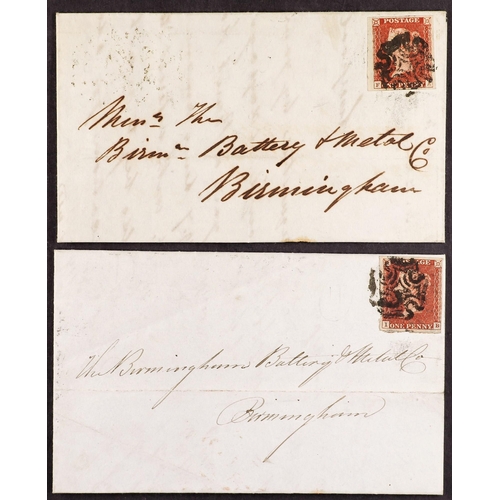 POSTAGE
Messrs The
Birmm Battery & Metal Co
Birmingham
ONE PENNY
The Birmingham Battery & Metal Co
Birmingham